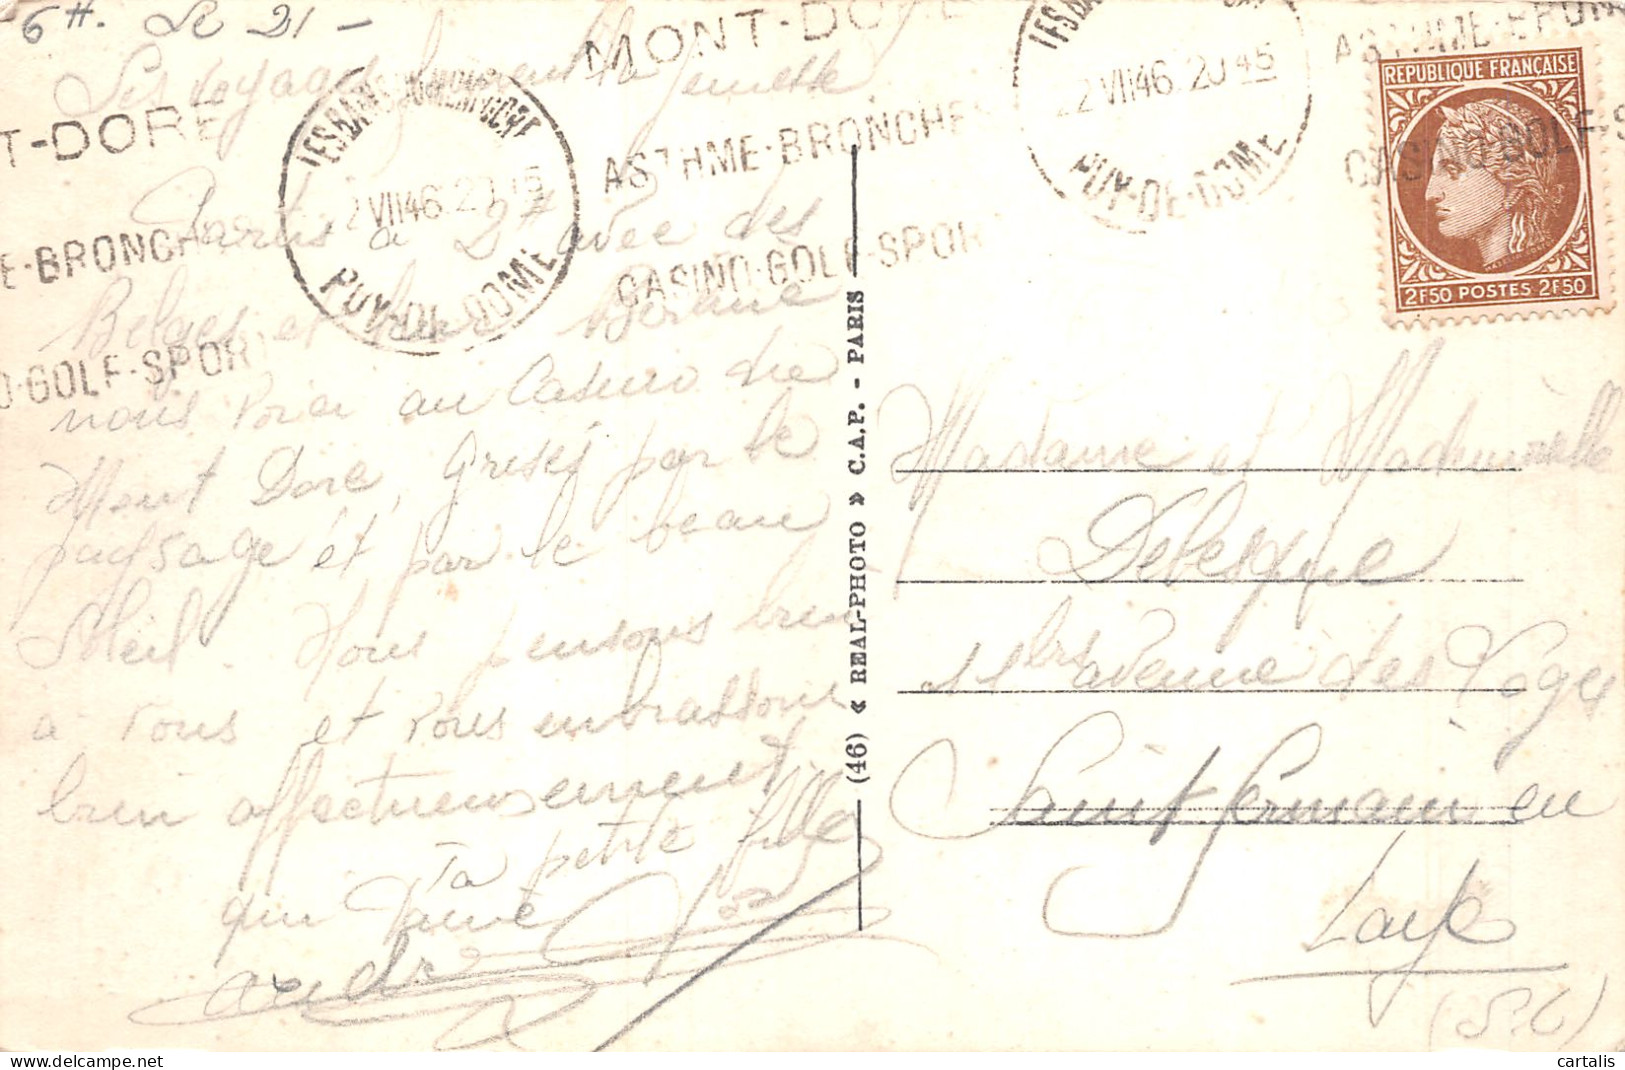 6H. Le 21 -
Les voyages forment la jeunesse
Partis à 2H avec des
Belges et
nous voici au Casino du
Mont Dore, grisés par le
paysage et par le beau
Soleil. Nous pensons bien
à vous et vous embrassons
bien affectueusement
Ta petite fille
qui t'aime
André
MONT-DORE
ASTHME·BRONCHES
CASINO·GOLF·SPORT
T-DORE
E·BRONCHE
O·GOLF·SPOR
LES BAINS DU MONT-DORE
22 VII 46. 20 45
PUY-DE-DOME
LES BAINS
22 VII 46. 20 45
PUY-DE-DOME
ASTHME·BRON
CASINO·GOLF·S
REPUBLIQUE FRANÇAISE
2F50 POSTES 2F50
(46) « REAL-PHOTO » C.A.P. - PARIS
Madame et Mademoiselle
Delesque
11 bis avenue des Loges
Saint Germain en
Laye
(S.O)
cartalis